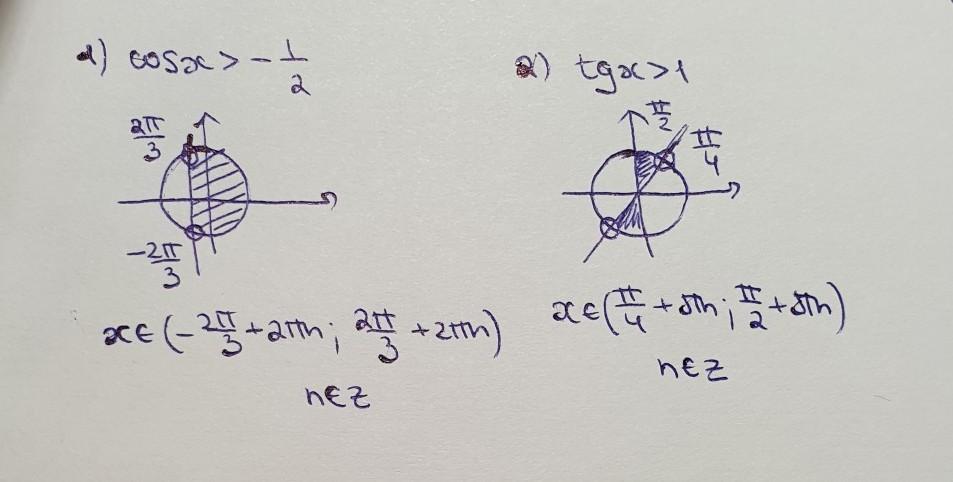 1) cosx > -1/2
2π/3
-2π/3
x∈(-2π/3+2πn; 2π/3+2πn)
n∈Z
2) tgx>1
π/2
π/4
x∈(π/4+πn; π/2+πn)
n∈Z